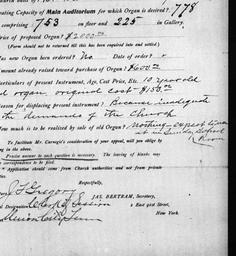 ating Capacity of Main Auditorium for which Organ is desired? 778
comprising 753 on floor and 225 in Gallery.
Price of proposed Organ? $2000.00
(Form should not to returned till this has been inquired into and settled)
as new Organ been ordered? No Date of order?
mount already raised toward purchase of Organ? $600.00
articulars of present Instrument, Age, Cost Price, Etc. 10 year old
organ, original cost $150.00
eason for displacing present instrument? Because inadequate
the demands of the Church
ow much is to be realized by sale of old Organ? Nothing expect to use
it in Sunday School
Room
To facilitate Mr. Carnegie's consideration of your appeal, will you oblige by filling in this form.
Precise answer to each question is necessary. The leaving of blanks may
correspondence to be suspended.
Application should come from Church authorities and not from private
Respectfully,
JAS. BERTRAM, Secretary,
2 East 91st Street,
New York.
J F Gregory
Clerk of Session
Tenn